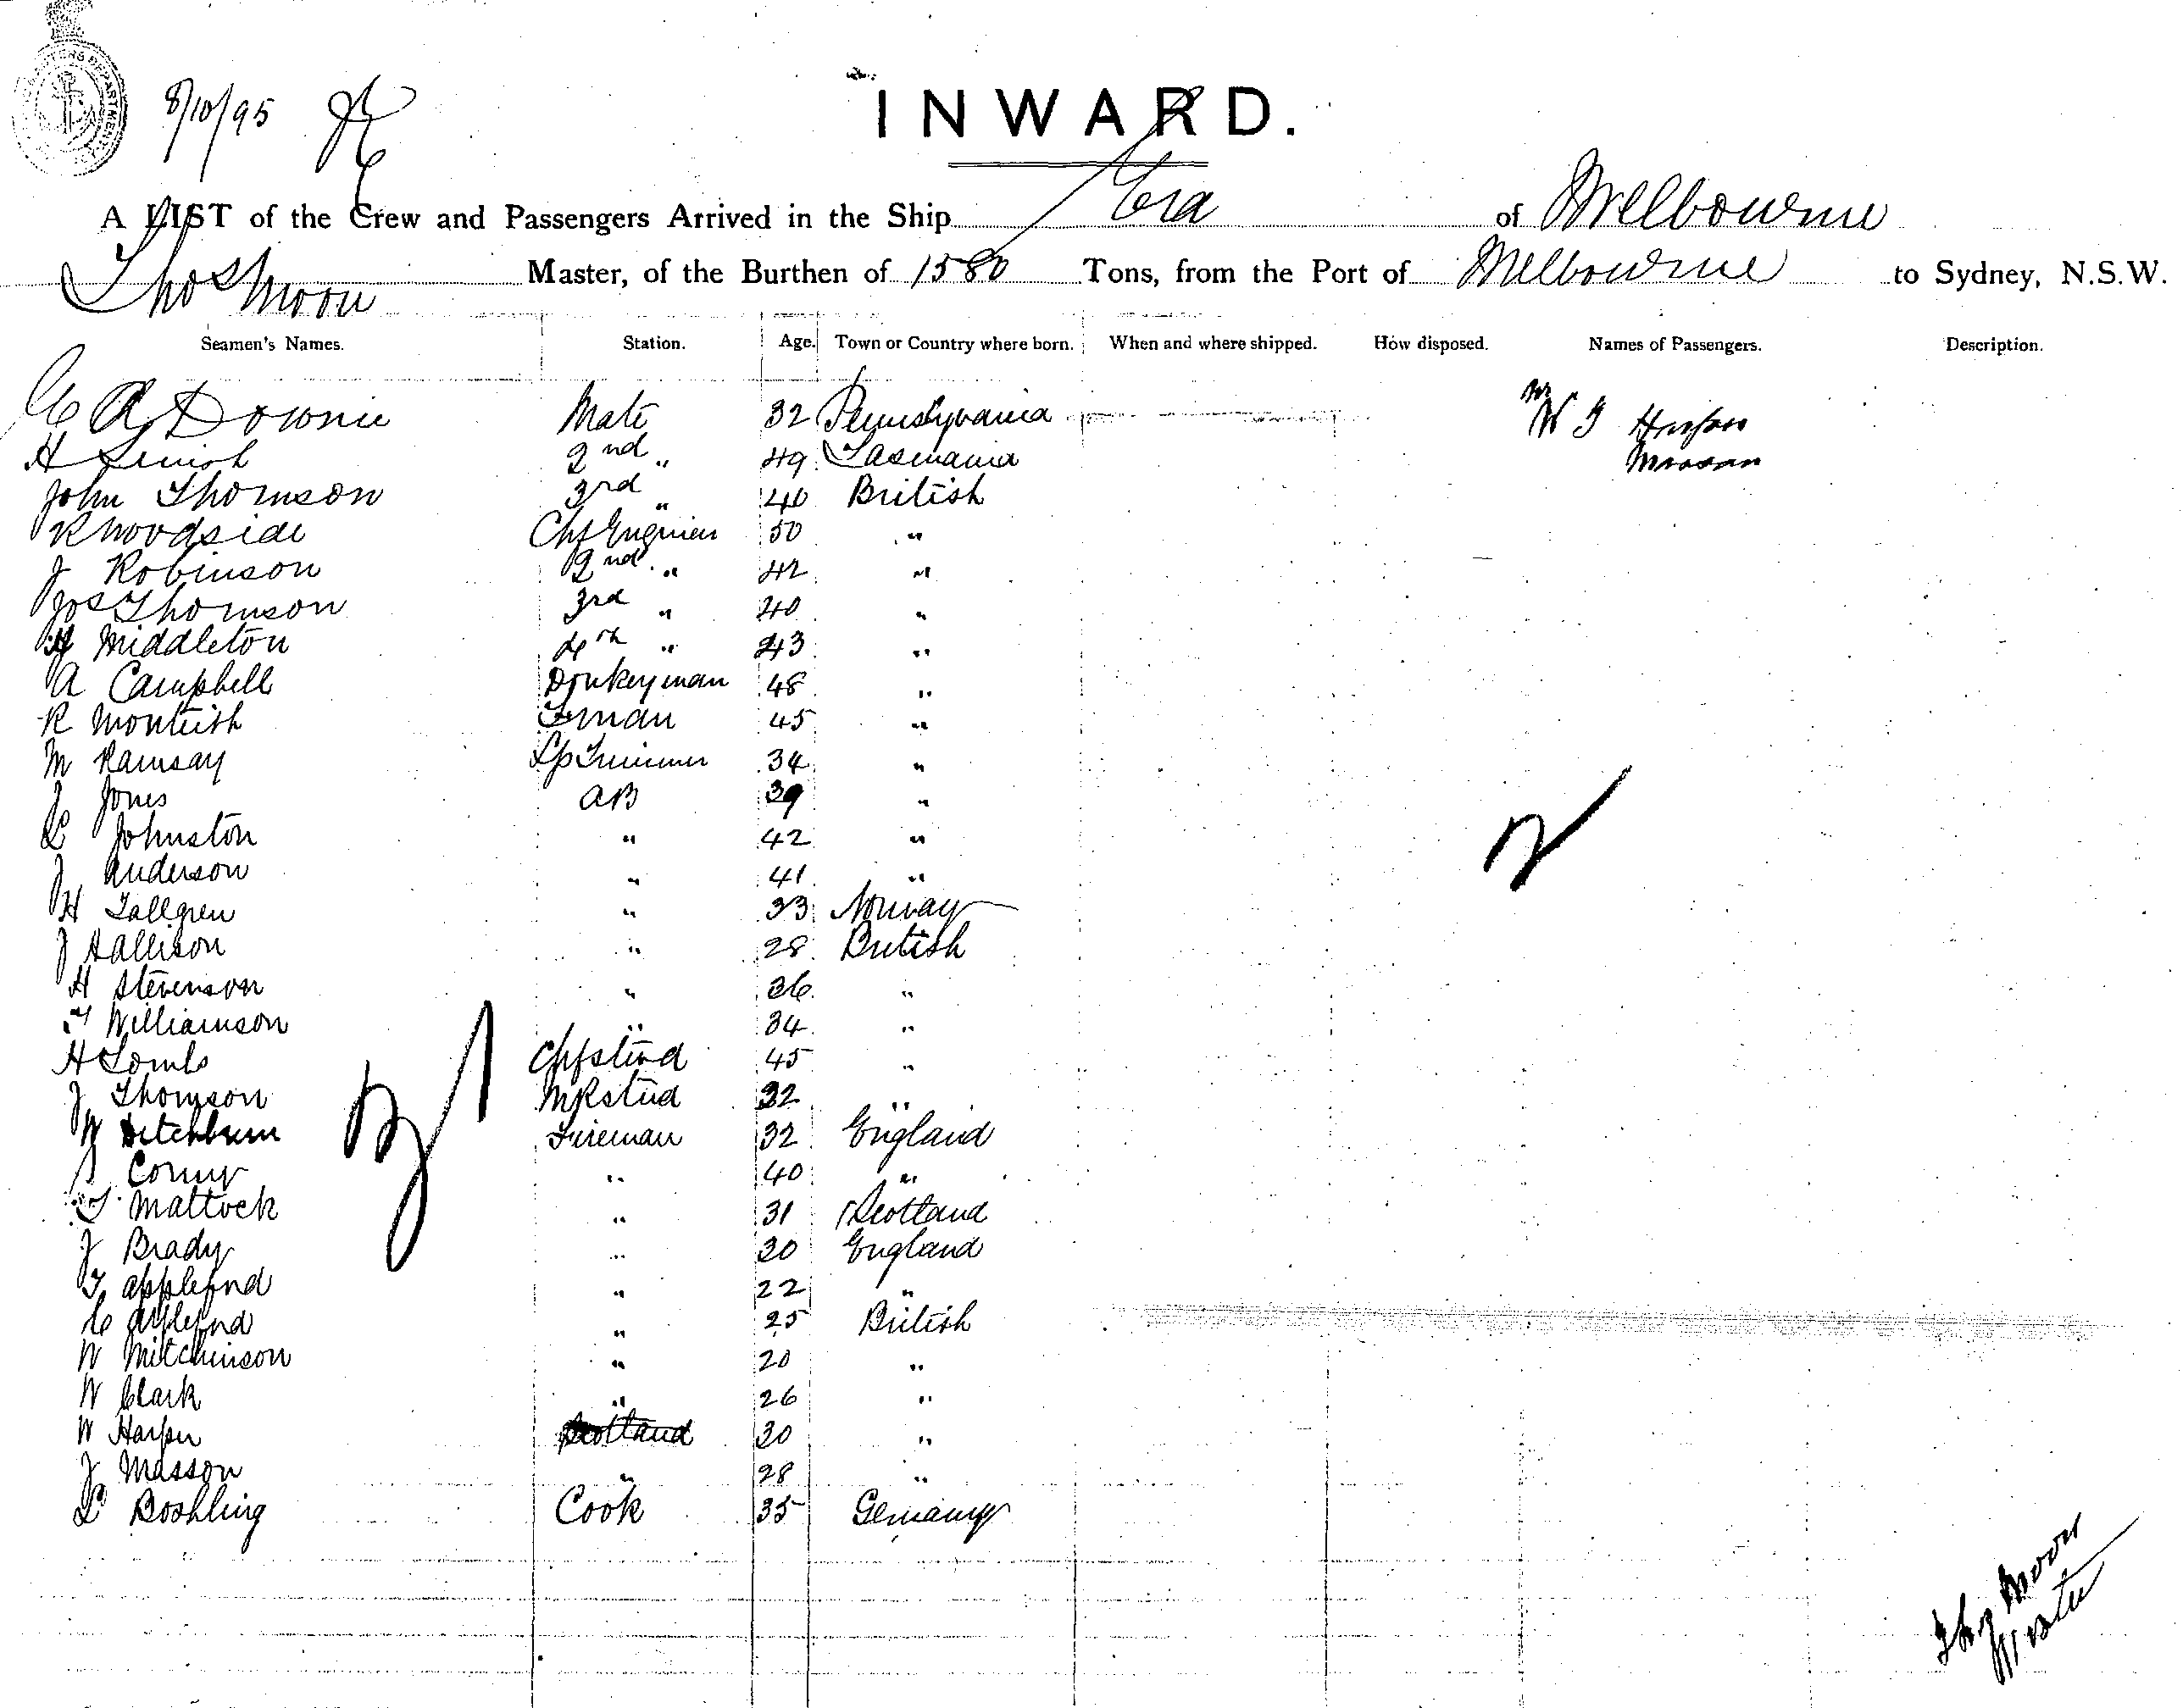 8/10/95
INWARD.
A LIST of the Crew and Passengers Arrived in the Ship Era of Melbourne
Thos Moon Master, of the Burthen of 1580 Tons, from the Port of Melbourne to Sydney, N.S.W.
Seamen's Names. Station. Age. Town or Country where born. When and where shipped. How disposed. Names of Passengers. Description.
C A Downie Mate 32 Pennsylvania Mr W J
H 2nd " 49 Tasmania
John Thomson 3rd " 40 British
R Woodside Chf Engineer 50 "
J Robinson 2nd " 42 "
Jos Thomson 3rd " 40 "
Middleton 4th " 43 "
A Campbell Donkeyman 48 "
R Monteith 45 "
M Ramsay Trimmer 34 "
J Jones AB 39 "
Johnston " 42 "
J Anderson " 41 "
H Tallgren " 33 Norway
J Hallison " 28 British
H Stevenson " 36 "
T Williamson " 34 "
H Chf Stwd 45 "
J Thomson 32 "
W Fireman 32 England
" 40 "
T Mattock " 31 Scotland
J Brady " 30 England
T Appleford " 22 "
C Appleford " 25 British
W Mitchinson " 20 "
W Clark " 26 "
W Harper Scotland 30 "
J Masson " 28 "
Boshling Cook 35 Germany
Thos Moon
Master